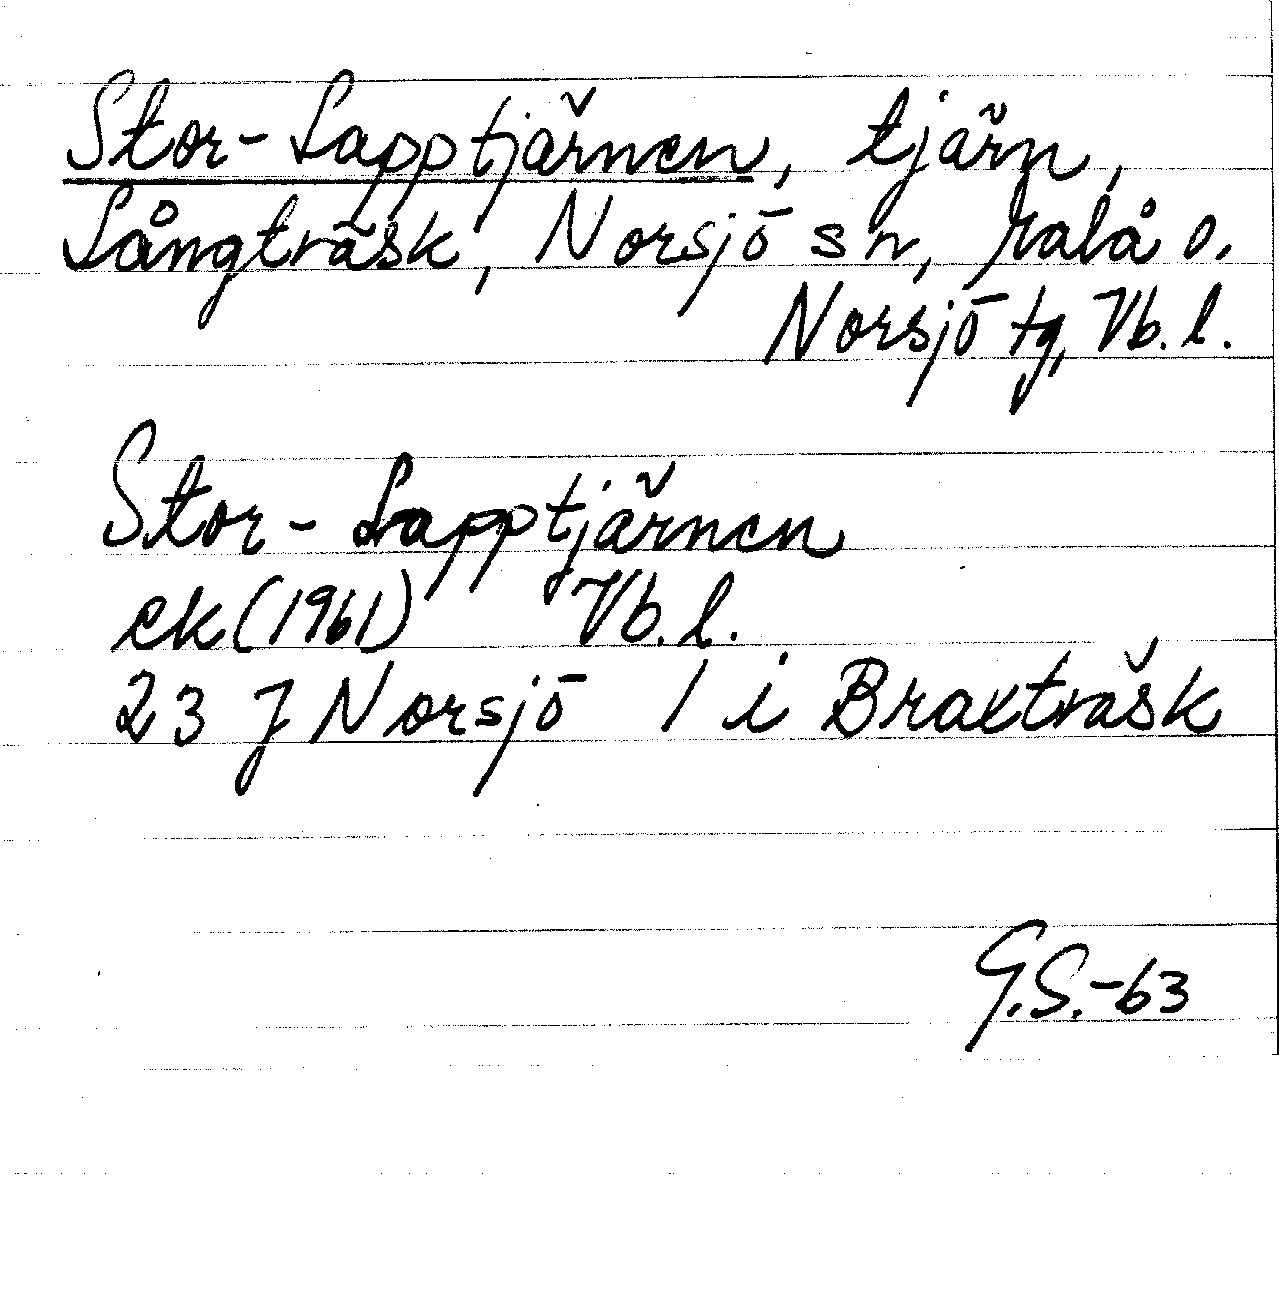 Stor-Lapptjärnen, tjärn,
Långträsk, Norsjö sn, Malå o.
Norsjö tg, Vb. l.
Stor-Lapptjärnen
ek (1961) Vb. l.
23 J Norsjö 1 i Braxträsk
G.S.-63